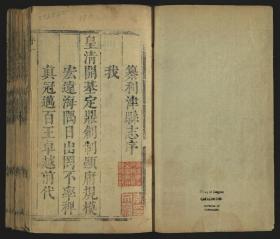 纂利津縣志序
我
皇清開基定鼎創制顯庸規模
宏遠海隅日出罔不率俾
真冠邁百王卓越前代